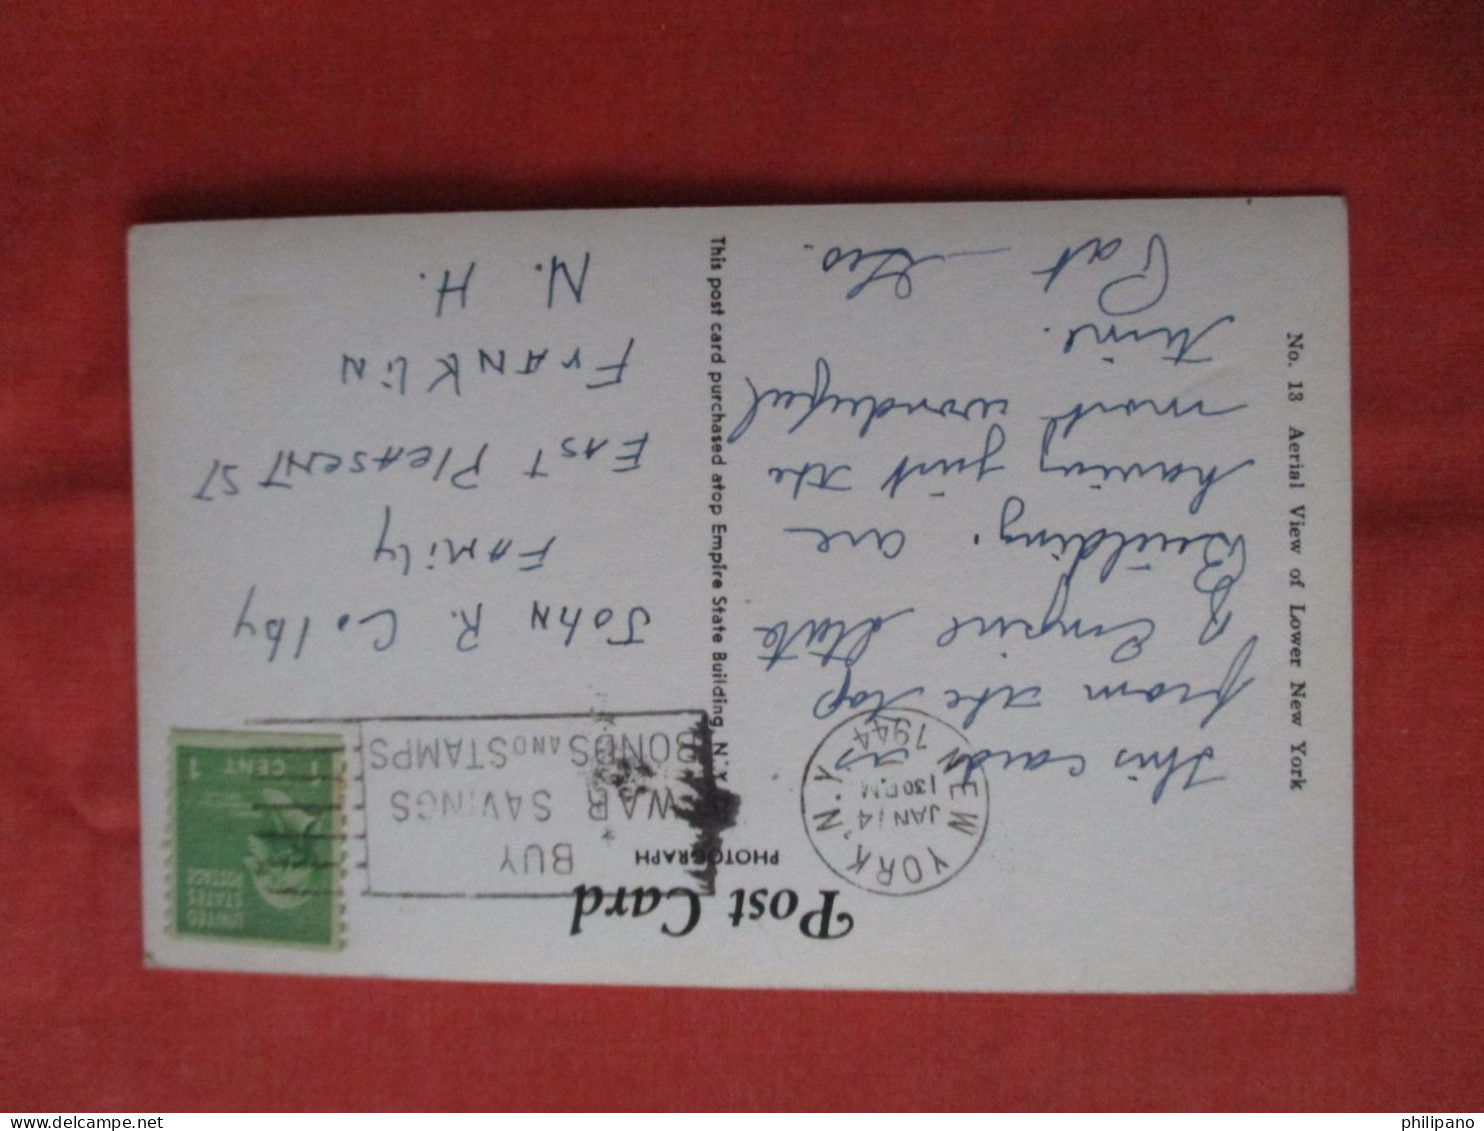 Post Card
PHOTOGRAPH
NEW YORK, N.Y.
JAN 14
130 PM
1944
BUY
WAR SAVINGS
BONDS AND STAMPS
UNITED
STATES
POSTAGE
1 CENT 1
This card is
from the top
Empire State
Building. are
having just the
most wonderful
time.
Pat — Geo.
John R. Colby
Family
East Pleasent St
Franklin
N. H.
This post card purchased atop Empire State Building, N.Y.
No. 13 Aerial View of Lower New York
philipano